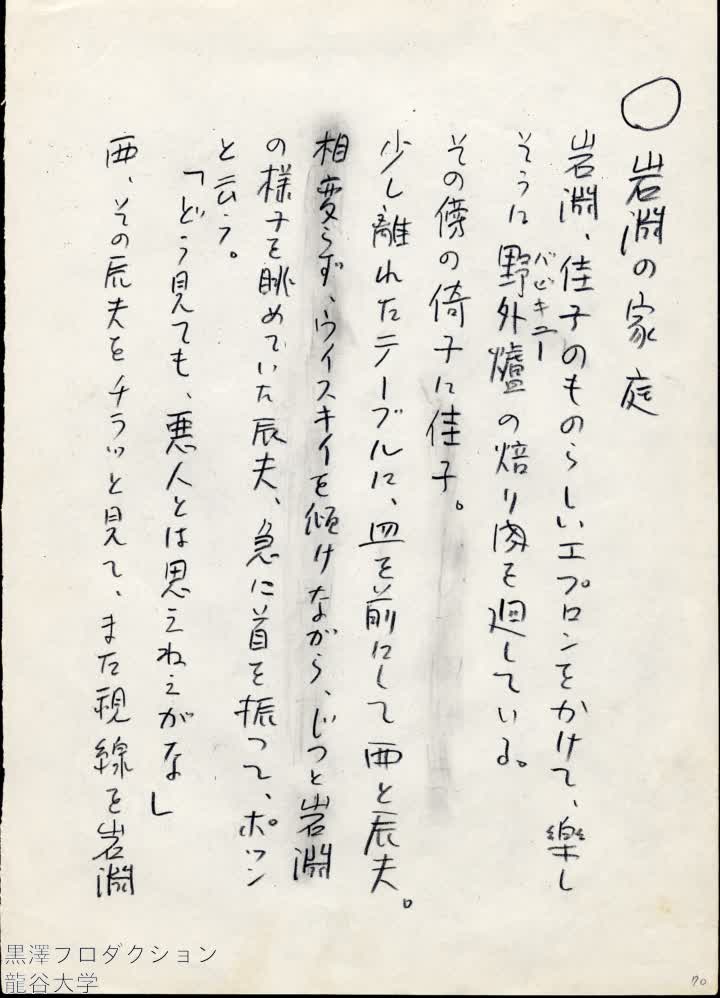 ○ 岩淵の家庭
岩淵、佳子のものらしいエプロンをかけて、樂し
そうに野外爐の焙り肉を廻している。
バビキユー
その傍の倚子に佳子。
少し離れたテーブルに、皿を前にして西と辰夫。
相変らず、ウイスキイを傾けながら、じつと岩淵
の様子を眺めていた辰夫、急に首を振つて、ポツン
と云う。
「どう見ても、悪人とは思えねえがな」
西、その辰夫をチラッと見て、また視線を岩淵
黒澤プロダクション
龍谷大学
70